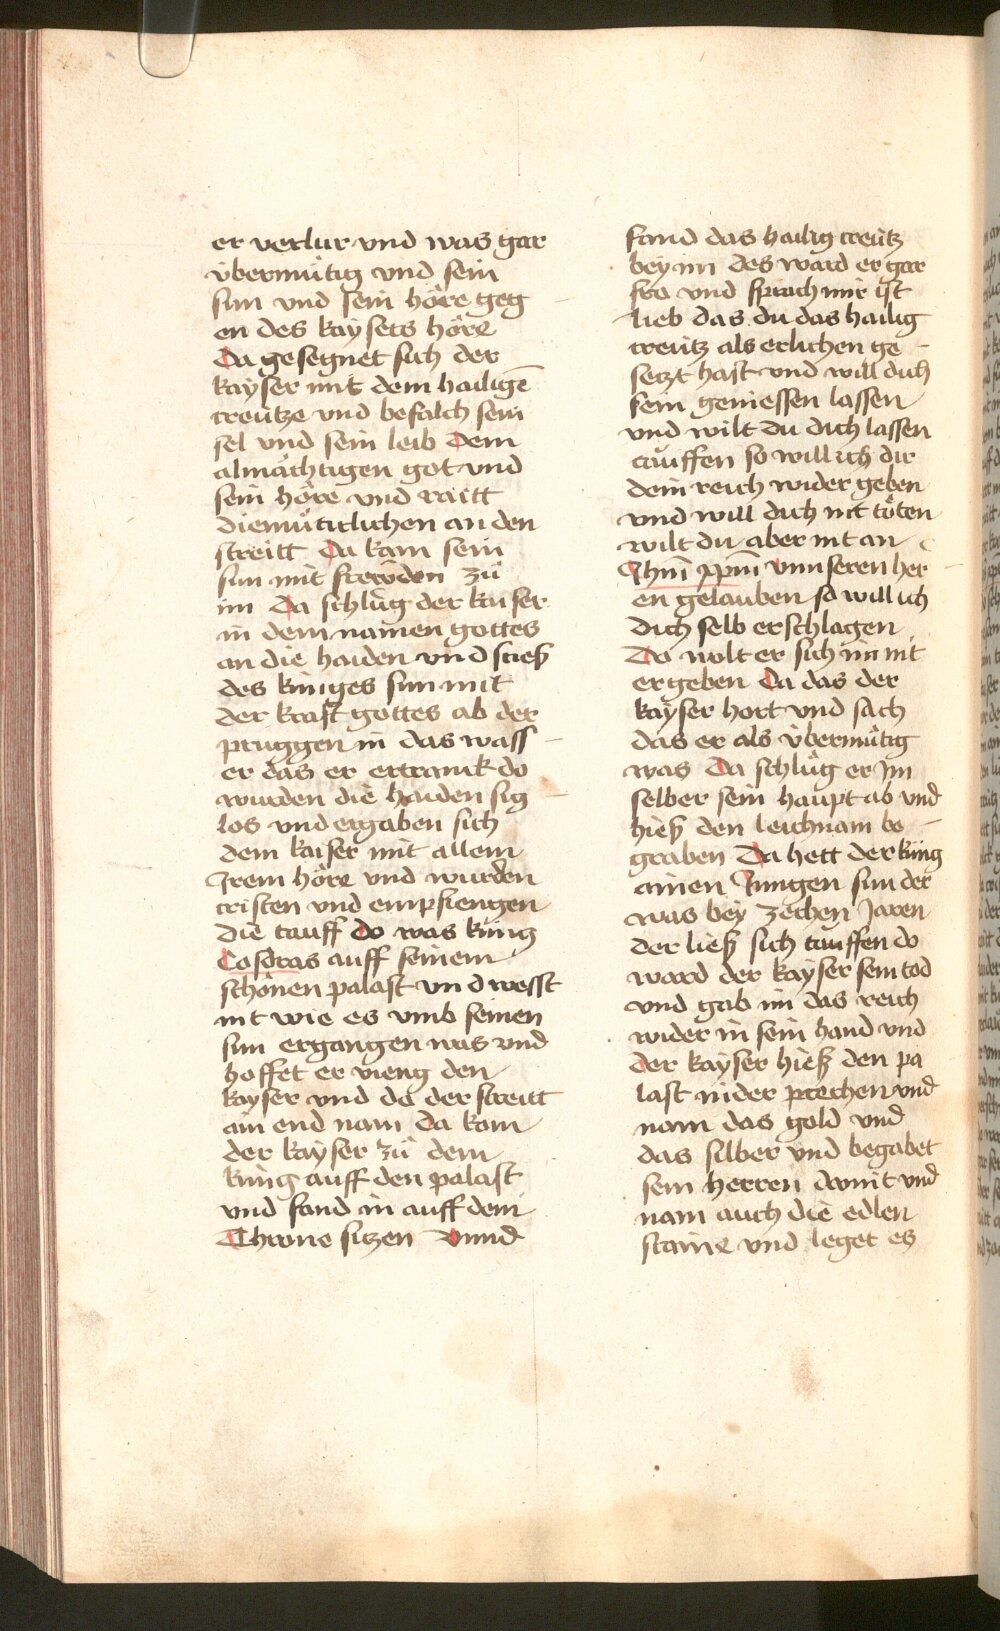 er verlur vnd was gar
übermütig vnd sein
sun vnd sein höre geg
en des kaysers höre
Da gesegnet sich der
kayser mit dem hailigē
creütze vnd befalch sein
sel vnd sein leib Dem
almächtigen got vnd
sein höre vnd raitt
diemüttclichen an den
streitt Da kam sein
sun mit freẅden zů
im Da schlůg der kaiser
in dem namen gottes
an die haiden vnd stieß
des küniges sun mit
der krafft gottes ab der
pruggen in das wass
er das er ertranck do
wurden die haiden sig
los vnd ergaben sich
dem kaiser mit allem
Irem höre vnd wurden
cristen vnd empfiengen
die tauff Do was küng
Cosdras auff seinem
schönen palast vnd wesst
nit wie es vmb seinen
sun ergangen was vnd
hoffet er vieng den
kayser vnd do der streitt
ain end nam Da kom
der kayser zů dem
küng auff den palast
vnd fand in auff dem
Throne sitzen Vnnd
fand das hailig creütz
bey im des ward er gar
fro vnd sprach mir ist
lieb das du das hailig
creütz als erlichen ge
setzt hast vnd will dich
sein geniessen lassen
vnd wilt du dich lassen
tauffen so will ich dir
dein reich wider geben
vnd will dich nit töten
wilt du aber nit an
Jhm̄ xp̄m vnnseren her
en gelauben so will ich
dich selb erschlagen
Do wolt er sich im nit
ergeben Da das der
kayser hort vnd sach
das er als übermütig
was Da schlůg er im
selber sein haupt ab vnd
hieß den leichnam be
graben Da hett der küng
ainen Jungen sun der
was bey zechen Jaren
der ließ sich tauffen do
ward der kayser sein tod
vnd gab im das reich
wider in sein hand vnd
der kayser hieß den pa
last nider prechen vnd
nam das gold vnd
das silber vnd begabet
sein herren damit vnd
nam auch die edlen
staine vnd leget es